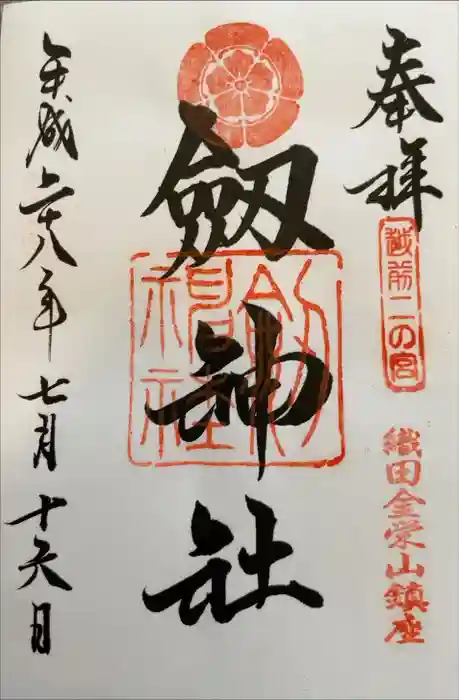 奉拝
越前二の宮
織田金栄山鎮座
劔神社
平成二十八年七月十六日